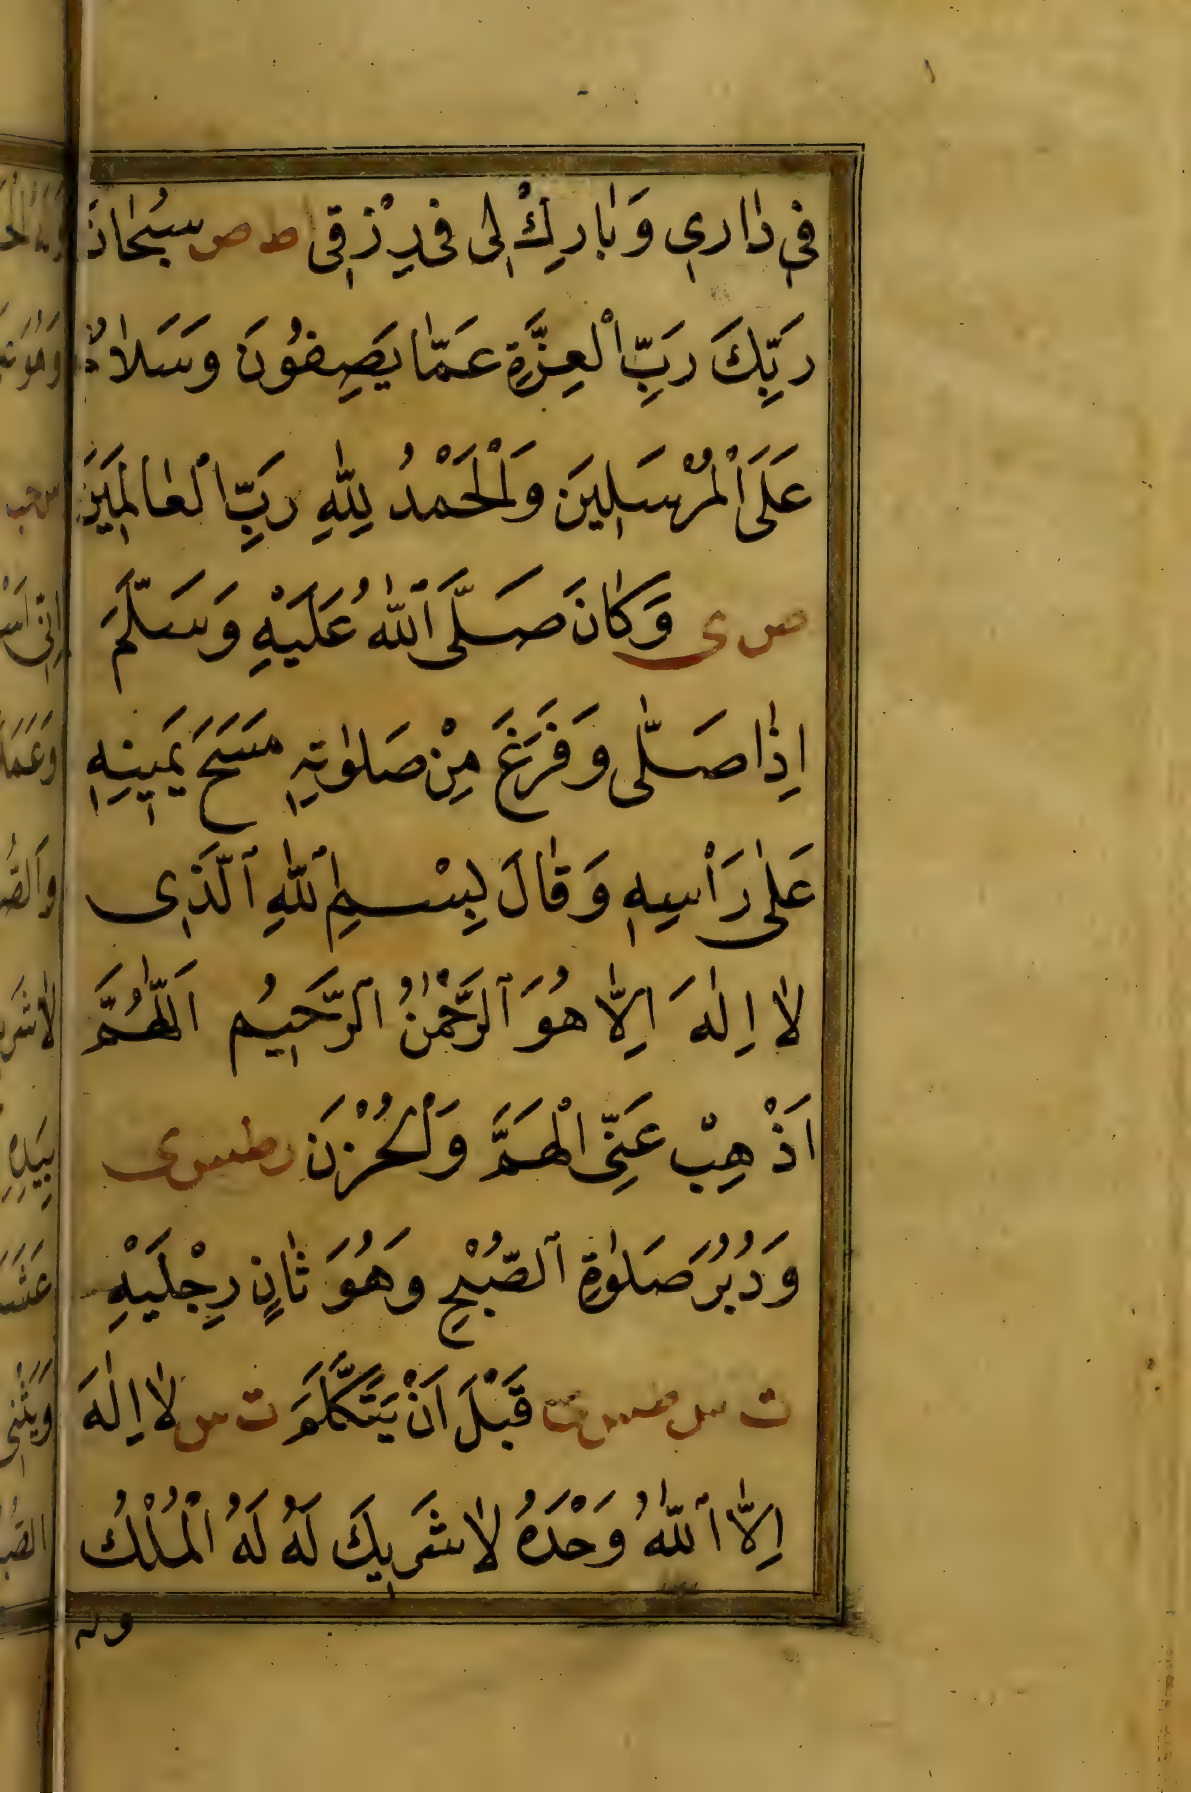 فِي دَارِي وَبَارِكْ لِي فِي رِزْقِي ط ص سُبْحَانَ
رَبِّكَ رَبِّ الْعِزَّةِ عَمَّا يَصِفُونَ وَسَلَامٌ
عَلَى الْمُرْسَلِينَ وَالْحَمْدُ لِلّٰهِ رَبِّ الْعَالَمِينَ
ص ى وَكَانَ صَلَّى اللّٰهُ عَلَيْهِ وَسَلَّمَ
اِذَا صَلَّى وَفَرَغَ مِنْ صَلٰوتِهِ مَسَحَ يَمِينِهِ
عَلٰى رَأْسِهِ وَقَالَ بِسْمِ اللّٰهِ الَّذِى
لَا اِلٰهَ اِلَّا هُوَ الرَّحْمٰنُ الرَّحِيمُ اَللّٰهُمَّ
اَذْهِبْ عَنِّى الْهَمَّ وَالْحُزْنَ ر طس ى
وَدُبُرَ صَلٰوةِ الصُّبْحِ وَهُوَ ثَانٍ رِجْلَيْهِ
ت س طس ى قَبْلَ اَنْ يَتَكَلَّمَ ت س لَا اِلٰهَ
اِلَّا اللّٰهُ وَحْدَهُ لَا شَرِيكَ لَهُ لَهُ الْمُلْكُ
وله